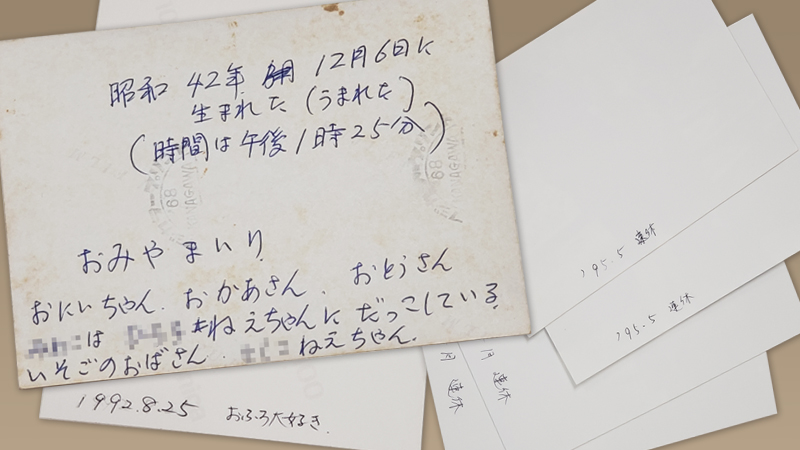 昭和 42年 12月6日に
生まれた (うまれた)
(時間は午後1時25分)
おみやまいり
おにいちゃん. おかあさん. おとうさん
は ねえちゃんに だっこしている
いそごのおばさん. ねえちゃん.
1992.8.25 おふろ大好き.
'95.5 連休
'95.5 連休
月 連休
月 連休